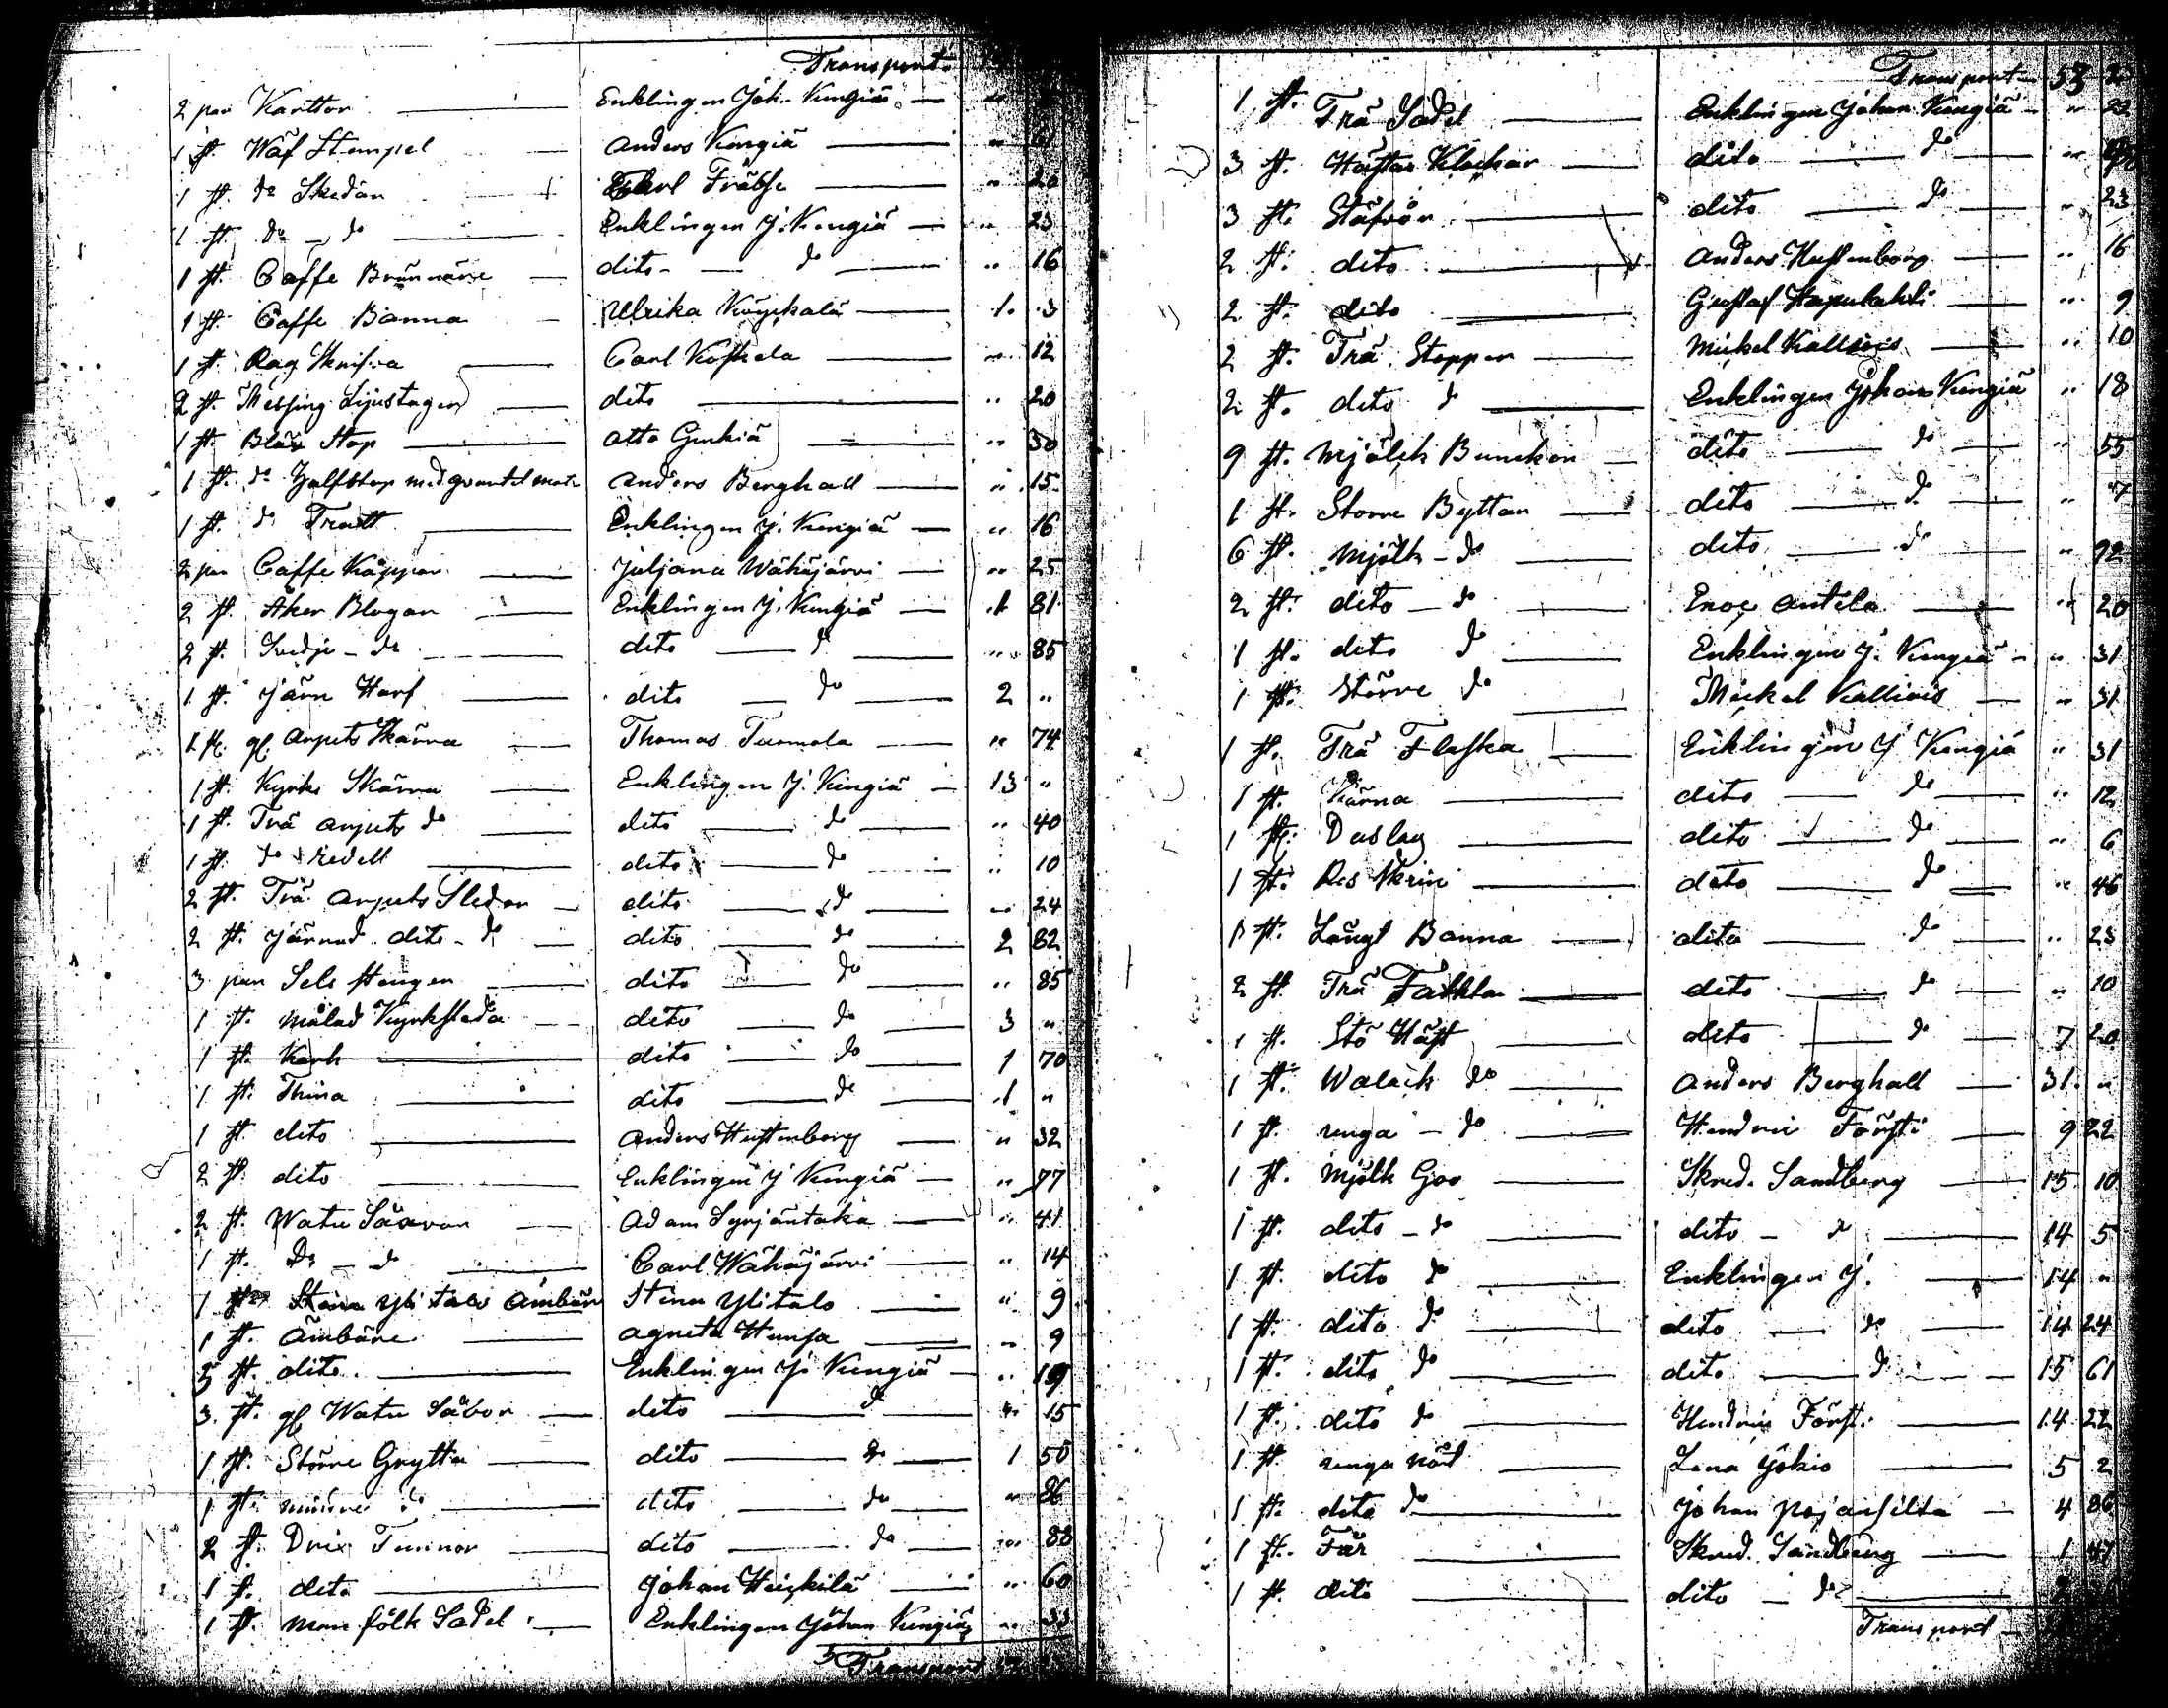 Transport
2 par Karttor — Enklingen Joh. Kungiä — "
1 st. Wäf Stempel — Anders Kungiä — "
1 st. do Skedar — — 20
1 st. do — do — Enklingen J. Kungiä — " 23
1 st. Caffe Brännare — dito — do — " 16
1 st. Caffe Panna — Ulrika — 1. 3
1 st. Rag Knifva — Carl Koskela — " 12
2 st. Messing Ljustagen — dito — " 20
1 st. Bläx Stop — Otto — " 30
1 st. do Halfstop med — Anders Berghall — " 15
1 st. do Tratt — Enklingen J. Kungiä — " 16
2 par Caffe Koppar — Juljana Wähäjärvi — " 25
2 st. Åker Plogar — Enklingen J. Kungiä — 1 81
2 st. Svedje — do — dito — do — " 85
1 st. Järn Harf — dito — do — 2 "
1 st. gl. Arpets Kärra — Thomas Tuomola — " 74
1 st. Kyrko Kärra — Enklingen J. Kungiä — 13 "
1 st. Trä arpets do — dito — do — " 40
1 st. do redell — dito — do — " 10
2 st. Trä arpets Sledar — dito — do — " 24
2 st. Järnad dito — do — dito — do — 2 82
3 par Sels stenger — dito — do — " 85
1 st. målad Kyrksleda — dito — do — 3 "
1 st. — dito — do — 1 70
1 st. Thina — dito — do — 1 "
1 st. dito — Anders Hustenberg — " 32
2 st. dito — Enklingen J Kungiä — " 77
2 st. Watu Såavar — Adam Syrjäntaka — " 41
1 st. do — do — Carl Wähäjärvi — " 14
1 st. Stina Yli talo Ämbar — Stina Ylitalo — " 9
1 st. Ämbare — Agneta Hunsa — " 9
5 st. dito — Enklingen J. Kungiä — " 19
3 st. gl Watu Såvar — dito — do — " 15
1 st. Större Grytta — dito — do — 1 50
1 st. mindre do — dito — do — " 86
2 st. Drix Tunnor — dito — do — " 88
1 st. dito — Johan Heickilä — " 60
1 st. man folk Sadel — Enklingen Johan Kungiä — " 33
Transport
Transport — 53
1 st. Trä Sadel — Enklingen Johan Kungiä — " 22
3 st. Hästar Klockar — dito — do — "
3 st. Stäfvor — dito — do — " 23
2 st. dito — Anders Hustenberg — " 16
2 st. dito — Gustaf Hapulahti — " 9
2 st. Trä Stoppar — Mickel Kallinis — " 10
2 st. dito do — Enklingen Johan Kungiä " 18
9 st. Mjölck Bunckar — dito — do — " 55
1 st. Storre Byttan — dito — do — " 7
6 st. Mjölk — do — dito — do — " 92
2 st. dito — do — Enoc Antila — " 20
1 st. dito do — Enklingen J. Kungiä — " 31
1 st. Större do — Mickel Kallinis — " 31
1 st. Trä Flaska — Enklingen J Kungiä " 31
1 st. Kärna — dito — do — " 12
1 st. Daslag — dito — do — " 6
1 st. Res Skrin — dito — do — " 46
1 st. Långt Banna — dito — do — " 23
2 st. Trä — dito — do — " 10
1 st. Stö Häst — dito — do — 7 20
1 st. Walack do — Anders Berghall — 31 "
1 st. unga — do — Hendric Försti — 9 22
1 st. Mjölk Goo — Skred. Sandberg — 15 10
1 st. dito — do — dito — do — 14 5
1 st. dito do — Enklingen J. — 14 "
1 st. dito do — dito — do — 14 24
1 st. dito do — dito — do — 15 61
1 st. dito do — Hendric Försti — 14 22
1 st. unga nöt — Lena Jokio — 5 2
1 st. dito do — Johan Pojansilta — 4 86
1 st. Får — Skred. Sandberg — 1 47
1 st. dito — dito — do —
Transport